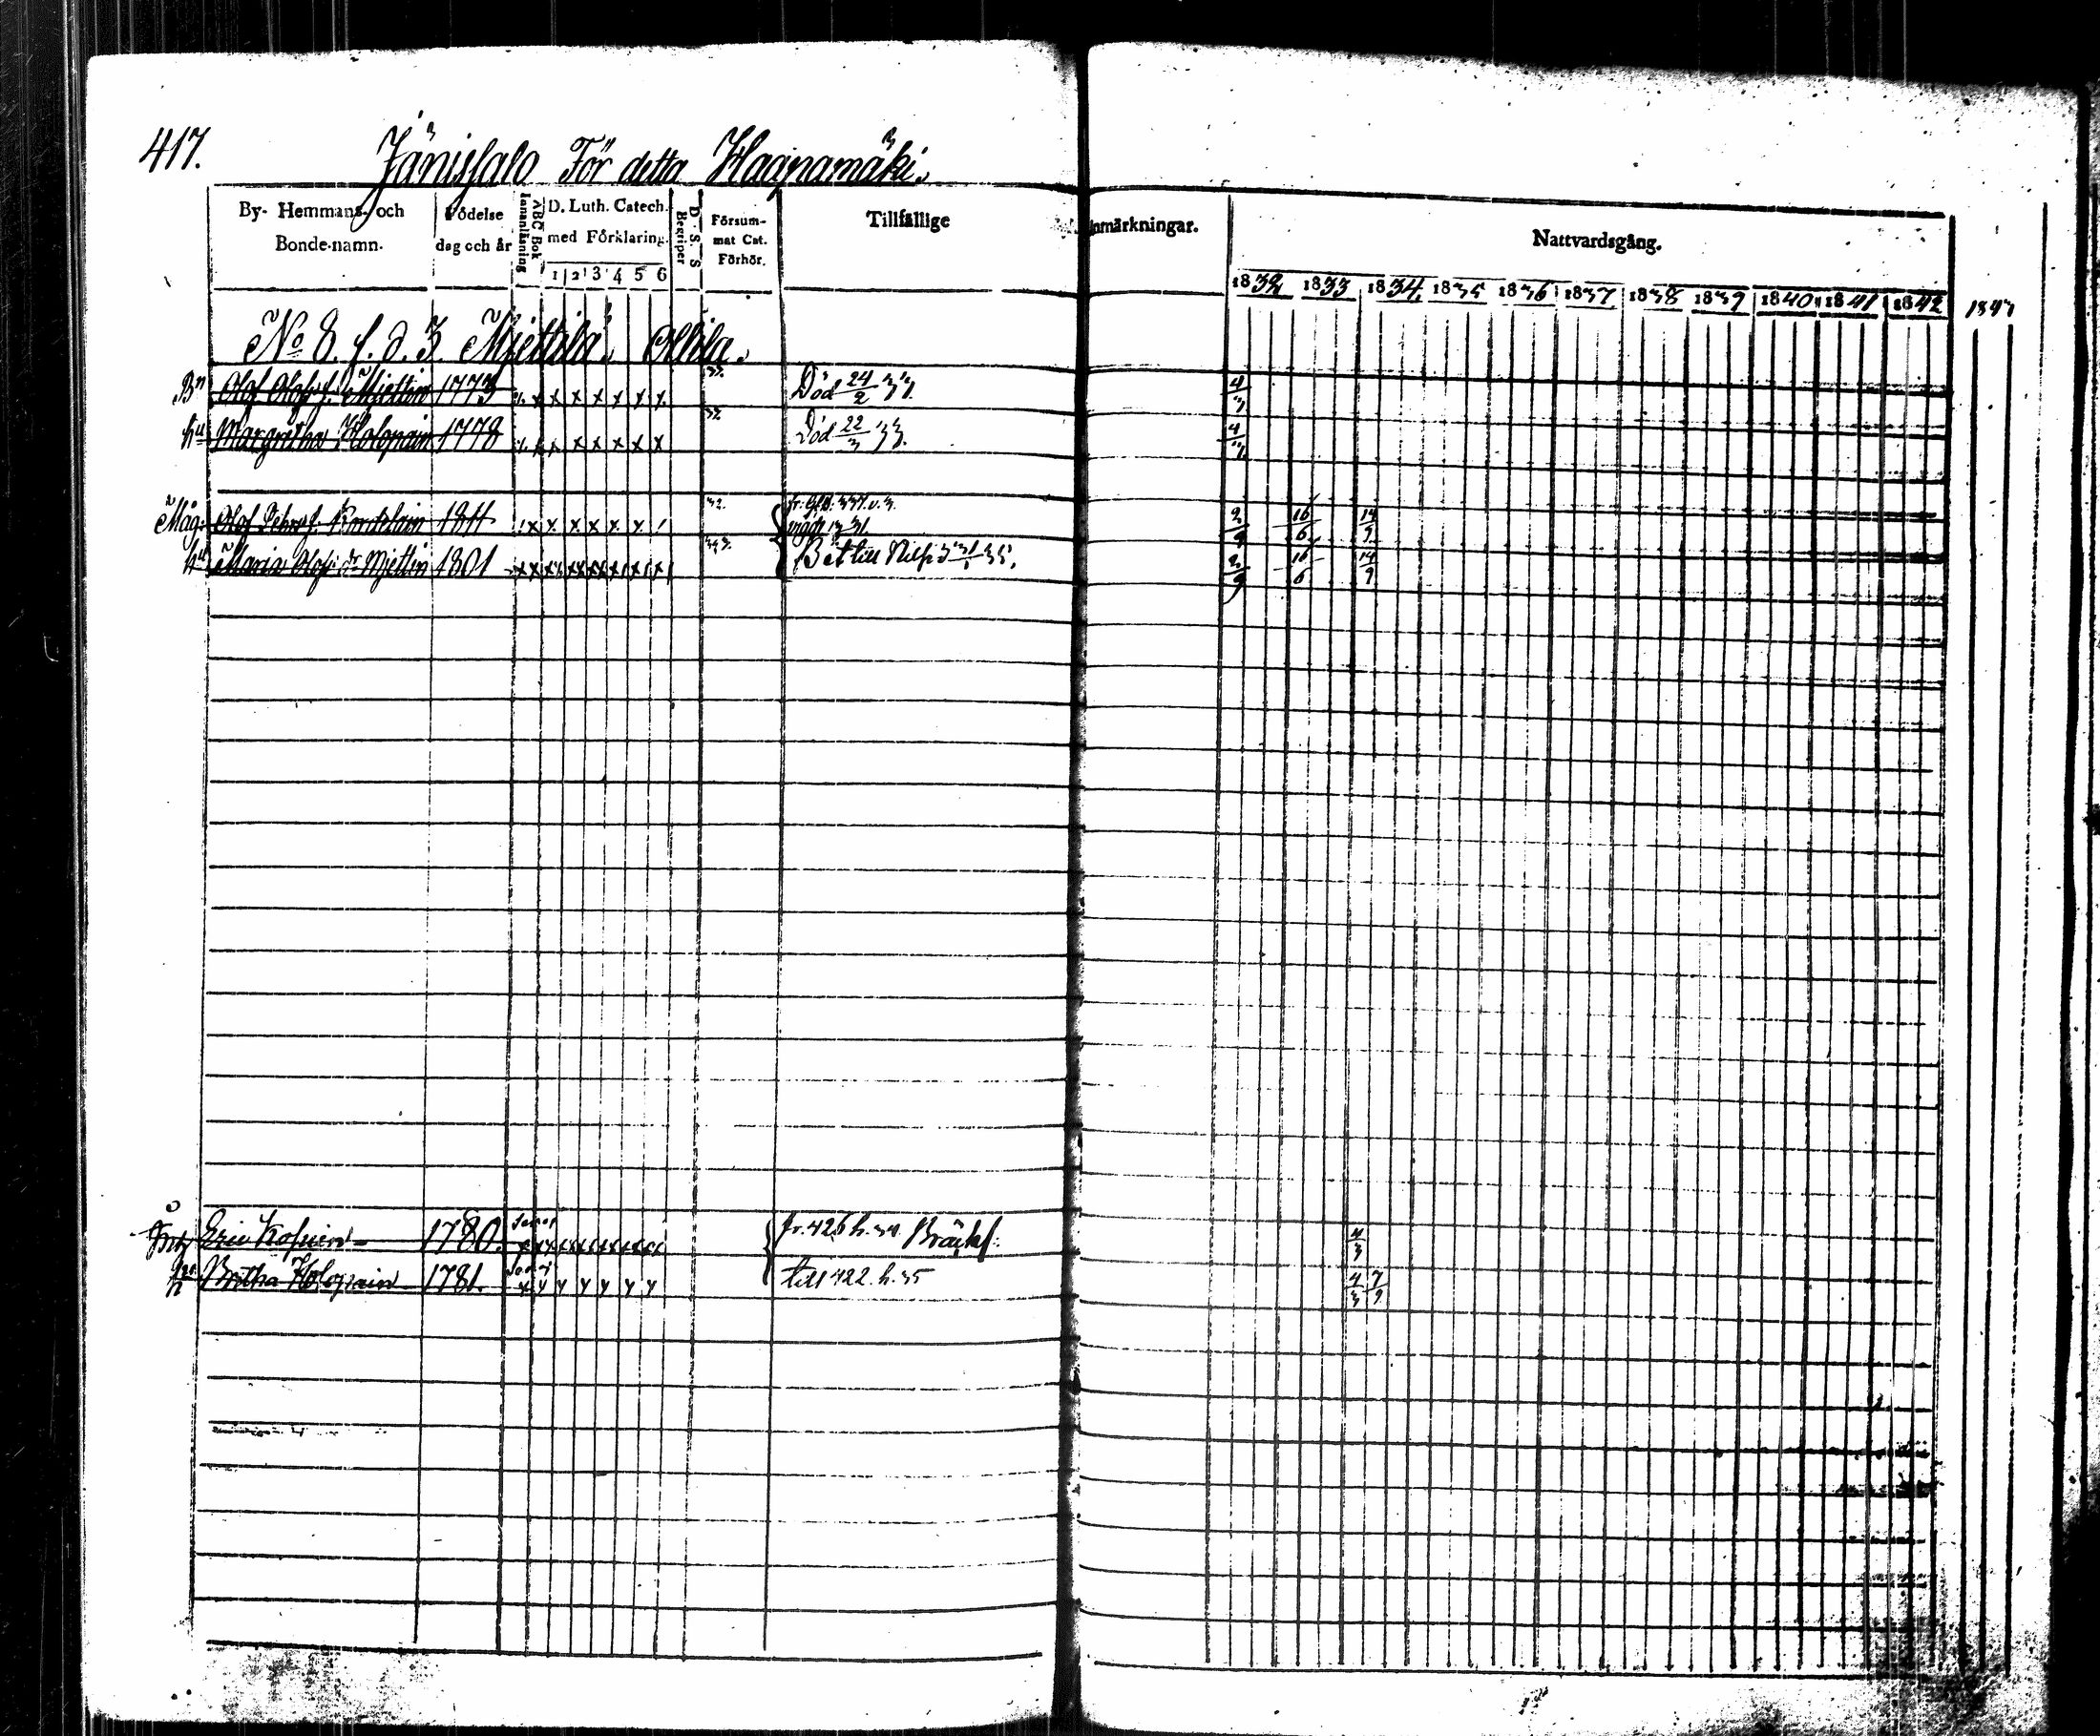 417.
Jänissalo För detta Haapamäki.
By- Hemmans- och Bonde-namn.
Födelse dag och år
Innanläsning
ABC Bok
D. Luth. Catech. med Förklaring.
1 2 3 4 5 6
D. S. S
Begriper
Försum- mat Cat. Förhör.
Tillfällige Anmärkningar.
Nattvardsgång.
1832 1833 1834 1835 1836 1837 1838 1839 1840 1841 1842 1843
No 8. f. d. 3 Miettilä. Ollila.
Bn Olof Olofss. Miettin 1773 x x x x x x x Död 24/2 37. 4/3
hu Margretha Holopain 1778 x x x x x x x 32 Död 22/3 33. 4/3
Måg. Olof Pehrss. 1811 x x x x x 32. 2/9 16/6 14/9
hu Maria Olofs dr Miettin 1801 x x x x x x x 2/9 16/6 14/9
Eric Kopain 1780. fr. 426 h. 34 Bräckl. 4/3
hu Britha Holopain 1781. till 422. h. 35 4/3 7/9